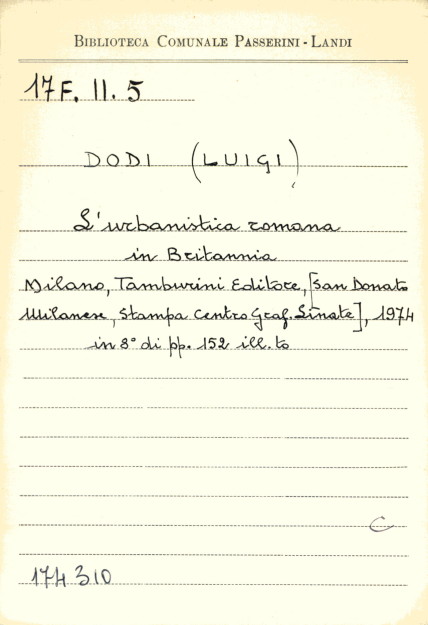 BIBLIOTECA COMUNALE PASSERINI - LANDI
17 F. II. 5
DODI (LUIGI)
L'urbanistica romana
in Britannia
Milano, Tamburini Editore, [San Donato
Milanese, Stampa Centro Graf. Linate], 1974
in 8° di pp. 152 ill.to
C
174310